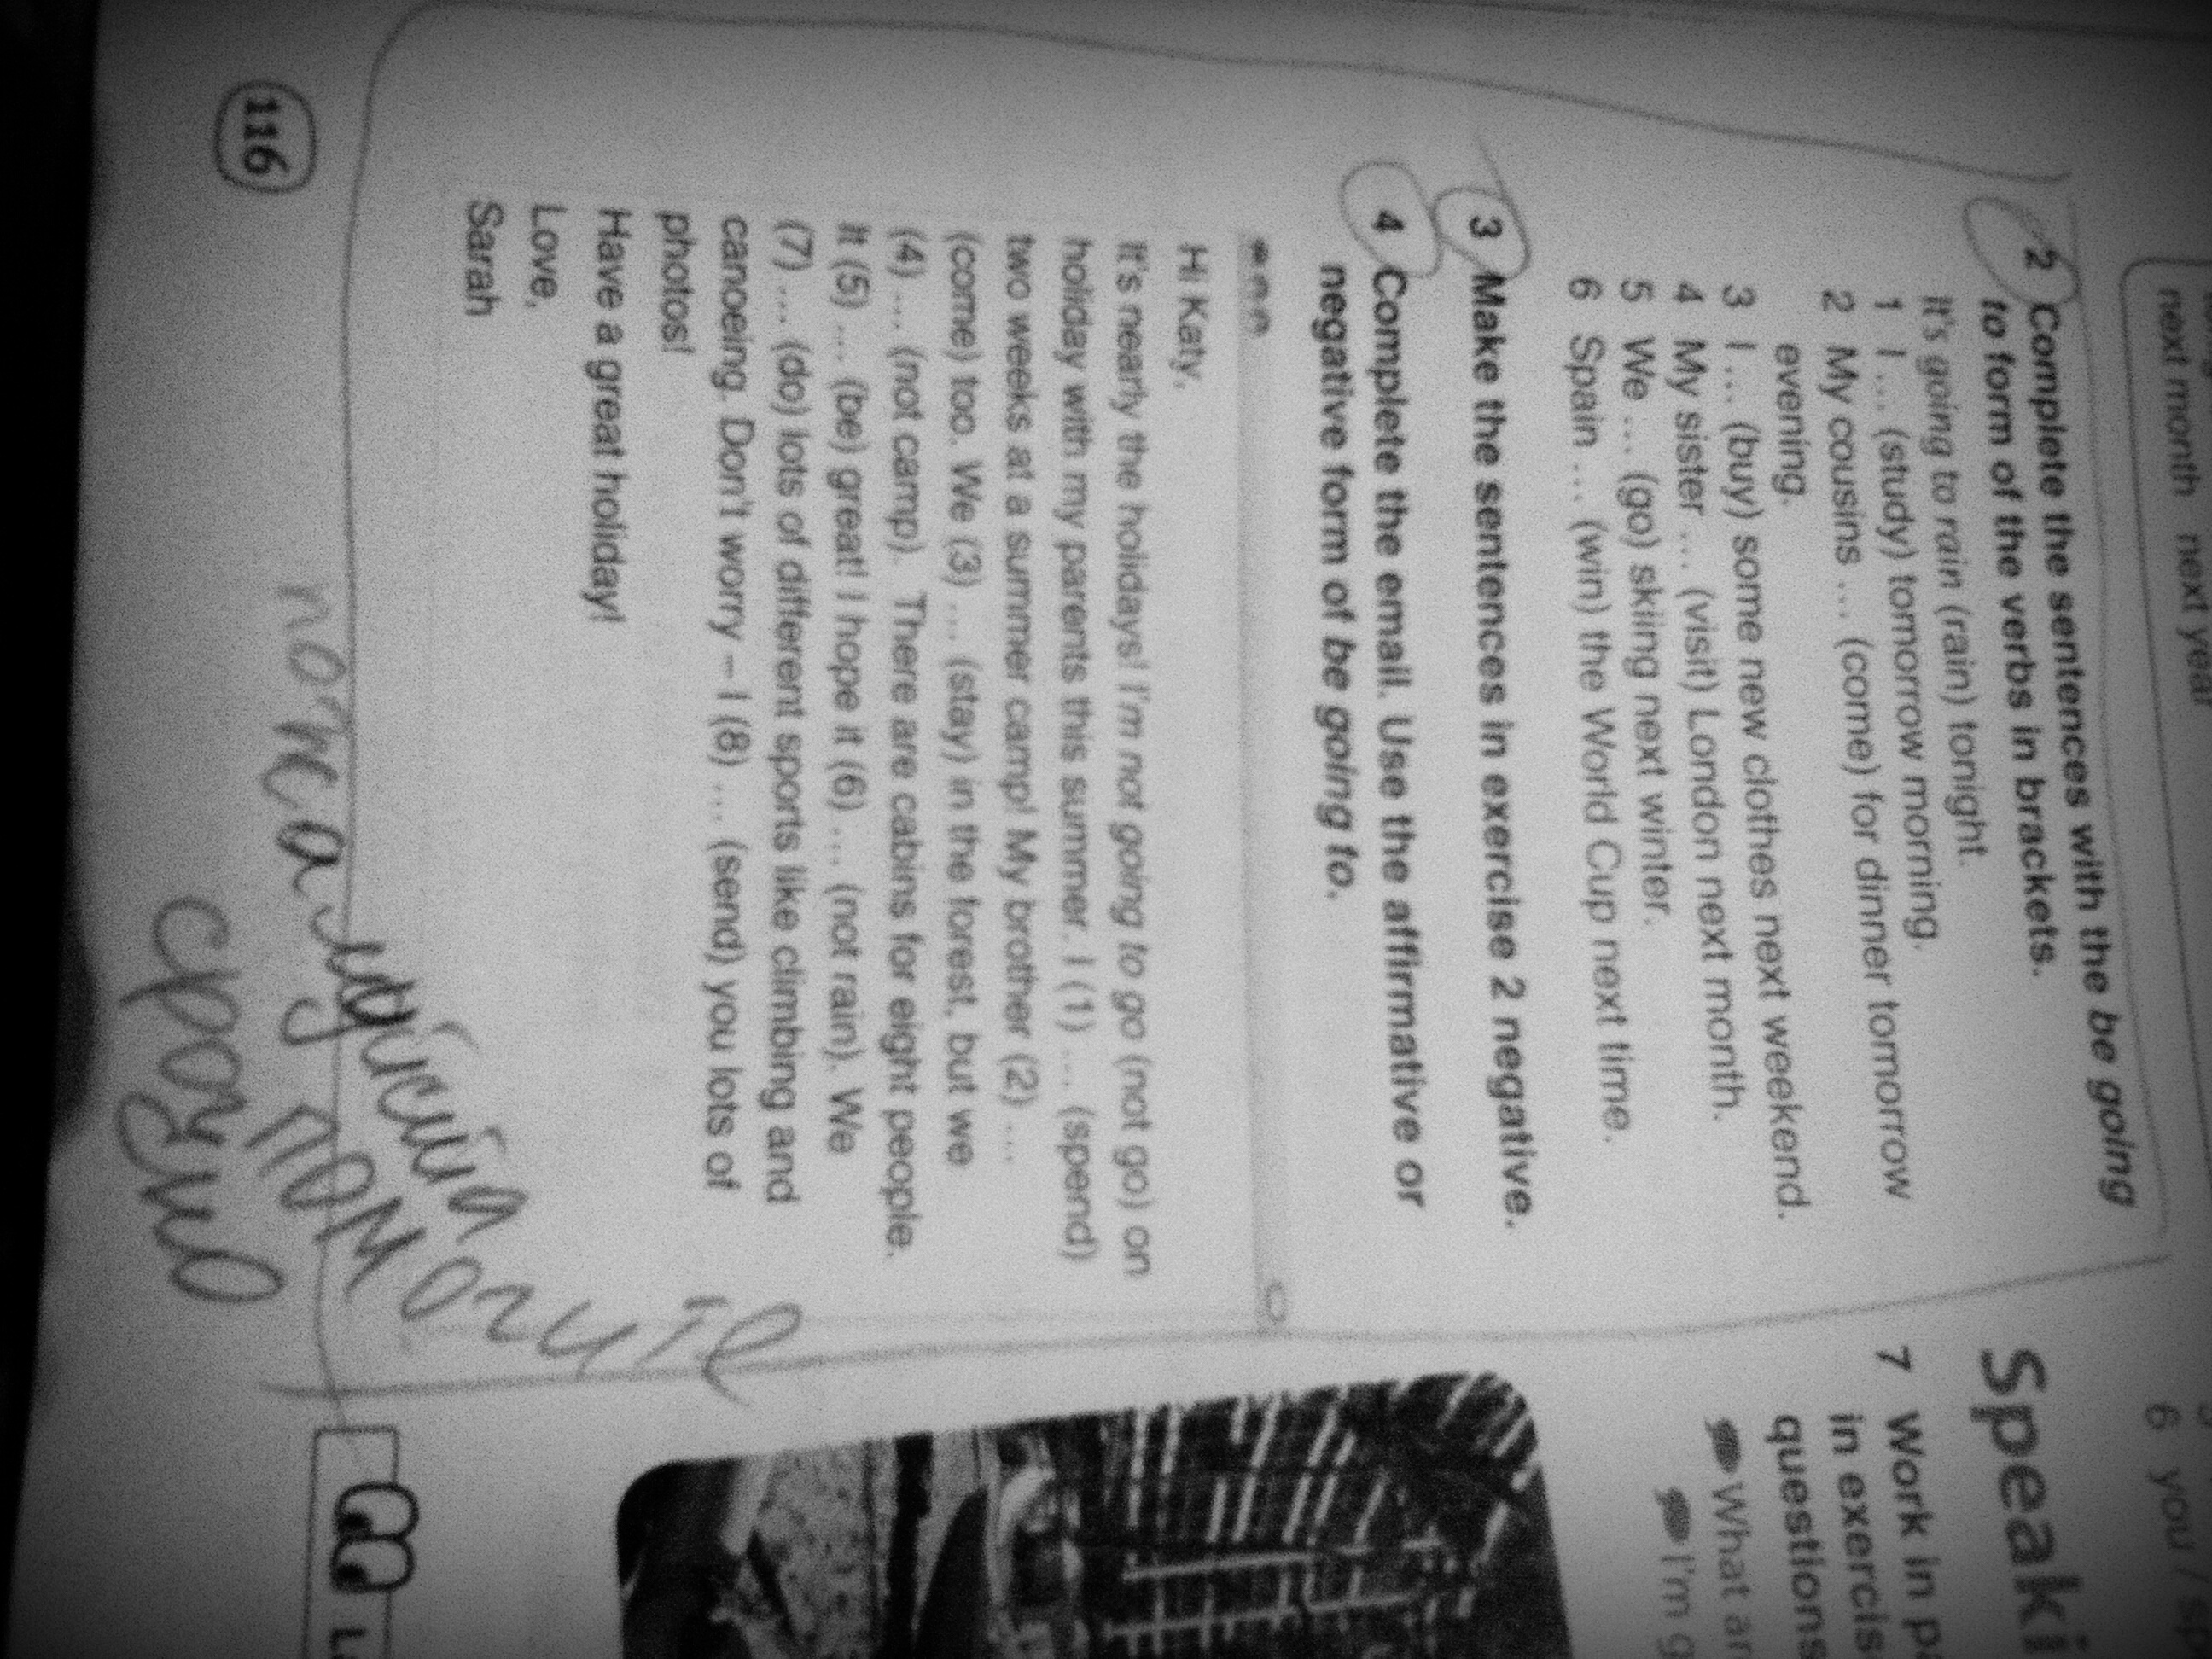 next month next year
2 Complete the sentences with the be going
to form of the verbs in brackets.
It's going to rain (rain) tonight.
1 I ... (study) tomorrow morning.
2 My cousins ... (come) for dinner tomorrow
evening.
3 I ... (buy) some new clothes next weekend.
4 My sister ... (visit) London next month.
5 We ... (go) skiing next winter.
6 Spain ... (win) the World Cup next time.
3 Make the sentences in exercise 2 negative.
4 Complete the email. Use the affirmative or
negative form of be going to.
Hi Katy,
It's nearly the holidays! I'm not going to go (not go) on
holiday with my parents this summer. I (1) ... (spend)
two weeks at a summer camp! My brother (2) ...
(come) too. We (3) ... (stay) in the forest, but we
(4) ... (not camp). There are cabins for eight people.
It (5) ... (be) great! I hope it (6) ... (not rain). We
(7) ... (do) lots of different sports like climbing and
canoeing. Don't worry – I (8) ... (send) you lots of
photos!
Have a great holiday!
Love,
Sarah
116
срозно
6 you /
Speaki
7 Work in
in exercis
questions
What ar
I'm g